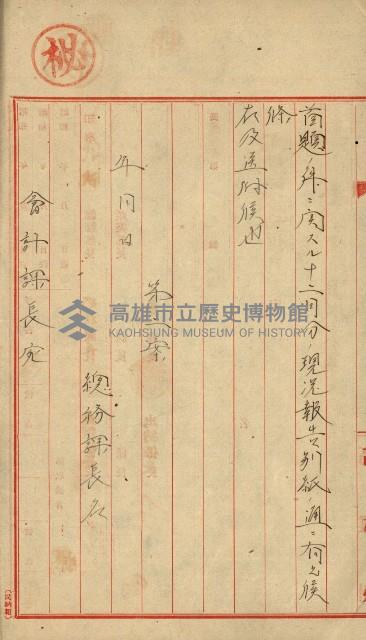 秘
首題ノ件ニ関スル十二月分ノ現況報告別紙ノ通ニ有之候
條
右及送付候也
第二案
年 月 日
總務課長名
會計課長宛
高雄市立歷史博物館
KAOHSIUNG MUSEUM OF HISTORY